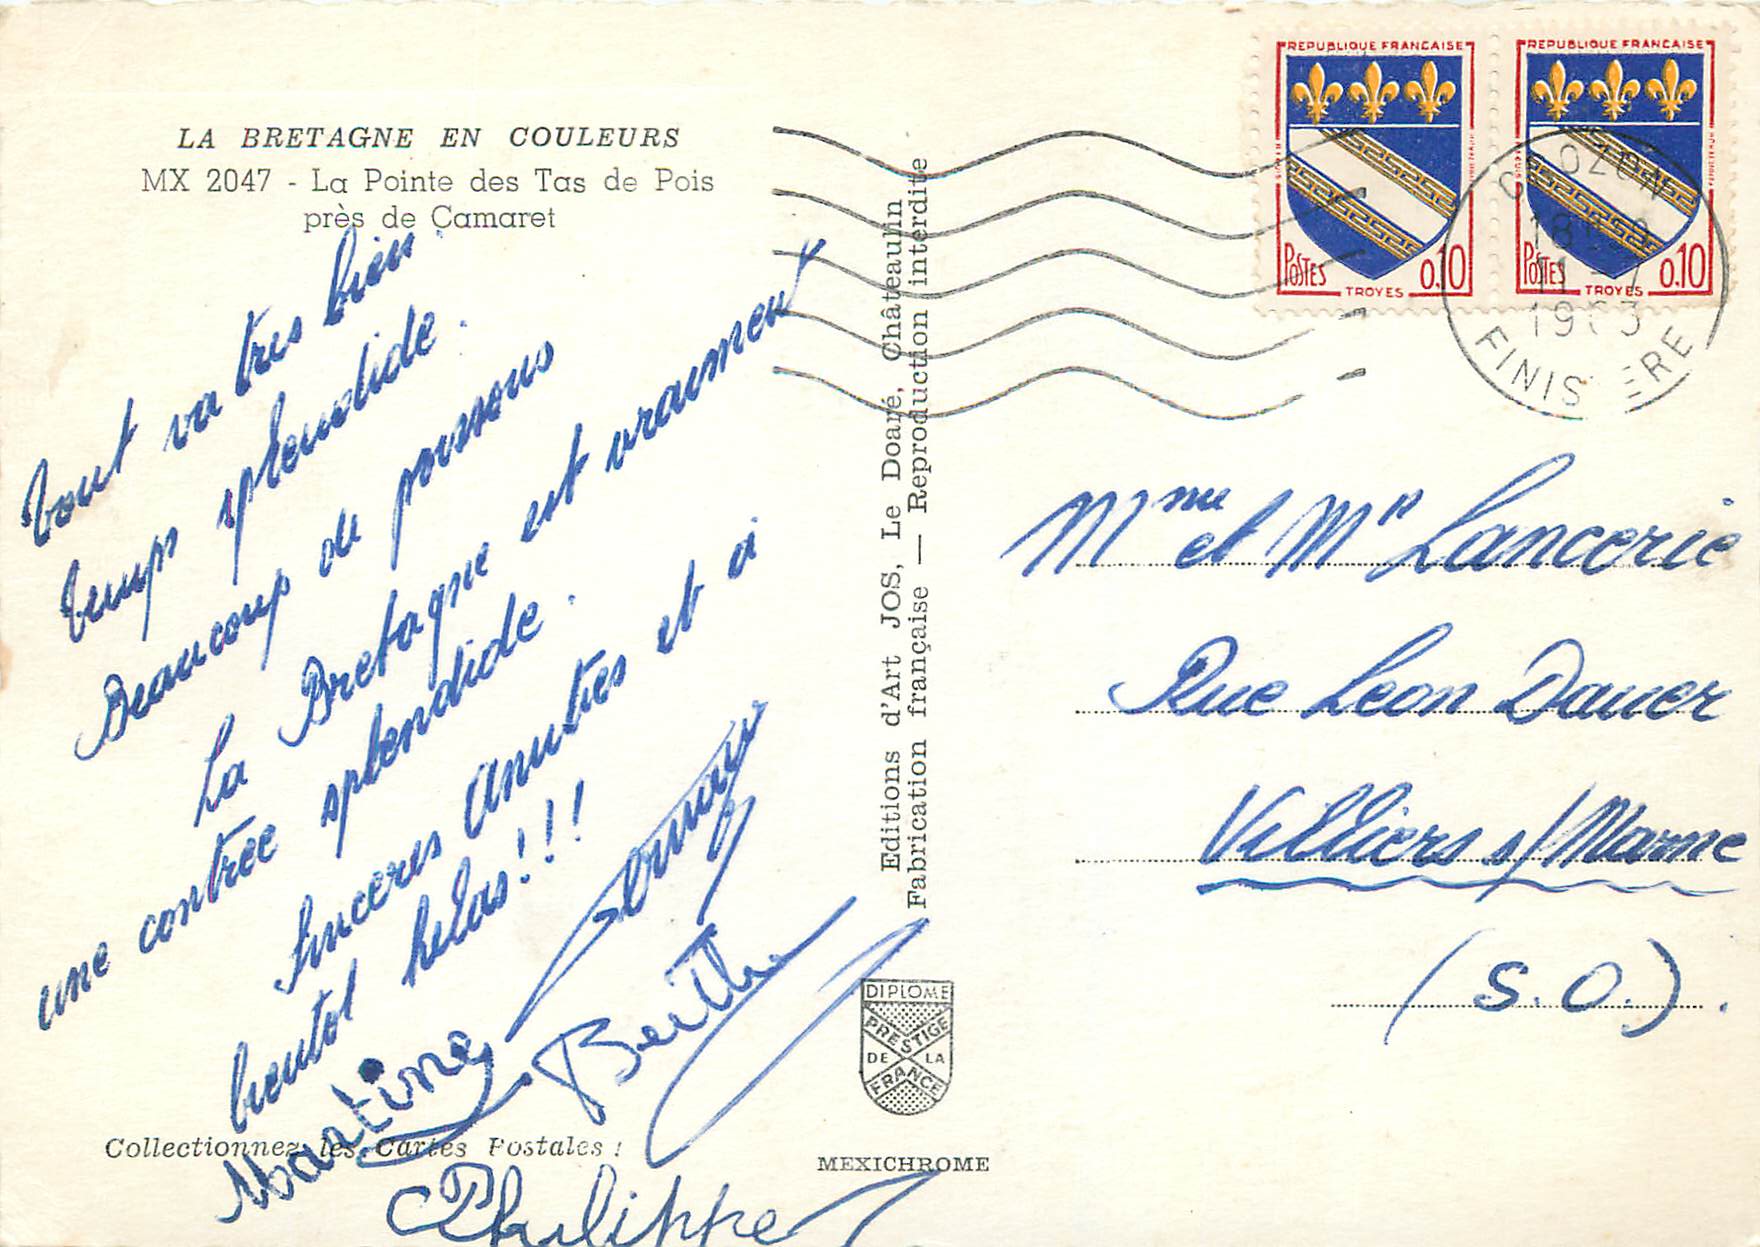 LA BRETAGNE EN COULEURS
MX 2047 - La Pointe des Tas de Pois
près de Camaret
Tout va tres bien.
Temps splendide.
Beaucoup de poissons
La Bretagne est vraiment
une contrée splendide.
Sinceres Amities et a
bientot helas!!!
Martine
Berthe
Philippe
Collectionnez les Cartes Postales !
Editions d'Art JOS, Le Doaré, Châteaulin
Fabrication française — Reproduction interdite
DIPLOME
PRESTIGE
DE LA
FRANCE
MEXICHROME
REPUBLIQUE FRANCAISE
POSTES
0,10
TROYES
REPUBLIQUE FRANCAISE
POSTES
0,10
TROYES
CROZON
1963
FINISTERE
Mme et Mr Lancerie
Rue Leon Dauer
Villiers s/Marne
(S.O.).